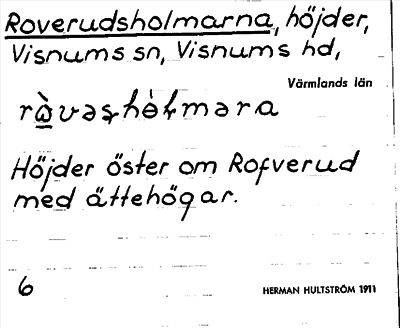 Roverudsholmarna, höjder,
Visnums sn, Visnums hd,
Värmlands län
Höjder öster om Rofverud
med ättehögar.
6
HERMAN HULTSTRÖM 1911